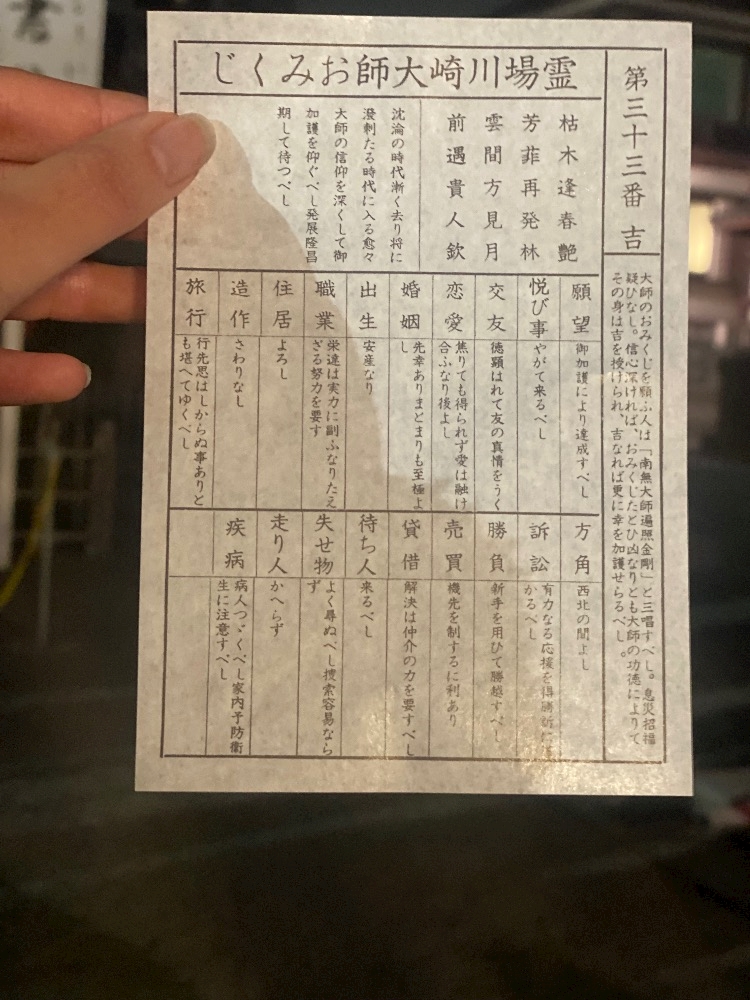 第三十三番 吉
大師のおみくじを願ふ人は「南無大師遍照金剛」と三唱すべし。息災招福
疑ひなし。信心深ければ、おみくじたとひ凶なりとも大師の功徳によりて
その身は吉を授けられ、吉なれば更に幸を加護せらるべし。
霊場川崎大師おみくじ
枯木逢春艶
芳菲再発林
雲間方見月
前遇貴人欽
沈淪の時代漸く去り将に
溌剌たる時代に入る愈々
大師の信仰を深くして御
加護を仰ぐべし発展隆昌
期して待つべし
願望
御加護により達成すべし
悦び事
やがて来るべし
交友
徳顕はれて友の真情をうく
恋愛
焦りても得られず愛は融け
合ふなり後よし
婚姻
先幸ありまどまりも至極よ
し
出生
安産なり
職業
栄達は実力に副ふなりたえ
ざる努力を要す
住居
よろし
造作
さわりなし
旅行
行先思はしからぬ事ありと
も堪へてゆくべし
方角
西北の間よし
訴訟
有力なる応援を得勝訴に
かるべし
勝負
新手を用ひて勝越すべし
売買
機先を制するに利あり
貸借
解決は仲介の力を要すべし
待ち人
来るべし
失せ物
よく尋ぬべし捜索容易なら
ず
走り人
かへらず
疾病
病人つゞくべし家内予防衛
生に注意すべし